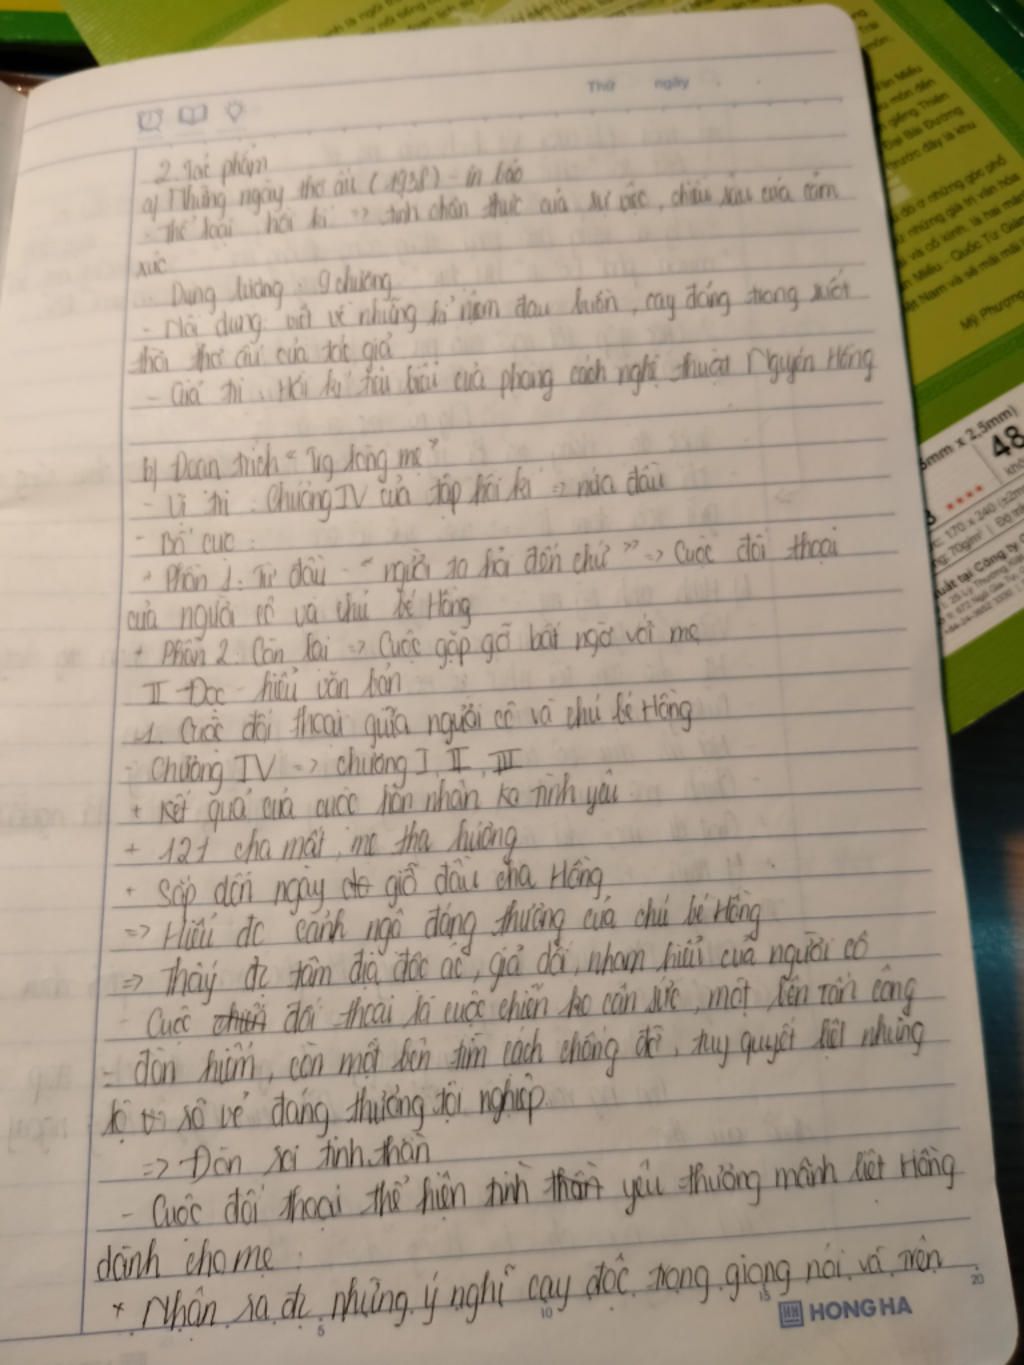 Thứ ngày
2. Tác phẩm
a) Những ngày thơ ấu (1938) - in báo
- Thể loại hồi kí => tính chân thực của sự việc, chiều sâu của cảm
xúc
- Dung lượng : 9 chương
- Nội dung: viết về những kỉ niệm đau buồn, cay đắng trong suốt
thời thơ ấu của tác giả
- Giá trị : Hồi kí tiêu biểu của phong cách nghệ thuật Nguyên Hồng
b) Đoạn trích " Trg lòng mẹ"
- Vị trí : Chương IV của tập hồi kí => nửa đầu
- Bố cục :
+ Phần 1: Từ đầu - " người ta hỏi đến chứ " => Cuộc đối thoại
của người cô và chú bé Hồng
+ Phần 2. Còn lại => Cuộc gặp gỡ bất ngờ với mẹ
II - Đọc - hiểu văn bản
1. Cuộc đối thoại giữa người cô và chú bé Hồng
- Chương IV => chương I, II, III
+ Kết quả của cuộc hôn nhân ko tình yêu
+ 121 cha mất, mẹ tha hương
+ Sắp đến ngày giỗ đầu cha Hồng
=> Hiểu đc cảnh ngộ đáng thương của chú bé Hồng
=> Thấy đc tâm địa độc ác, giả dối, nham hiểm của người cô
- Cuộc chiến đối thoại là cuộc chiến ko cân sức, một bên tấn công
- đòn hiểm, còn một bên tìm cách chống đỡ, tuy quyết liệt nhưng
lộ số vẻ đáng thương tội nghiệp
=> Đòn roi tinh thần
- Cuộc đối thoại thể hiện tình thần yêu thương mãnh liệt Hồng
dành cho mẹ :
+ Nhận ra đc những ý nghĩ cay độc trong giọng nói và trên
5 10 15 20
HONG HA
5mm x 2,5mm)
48
170 x 240 (±2m
70g/m²
Mỹ Phượng